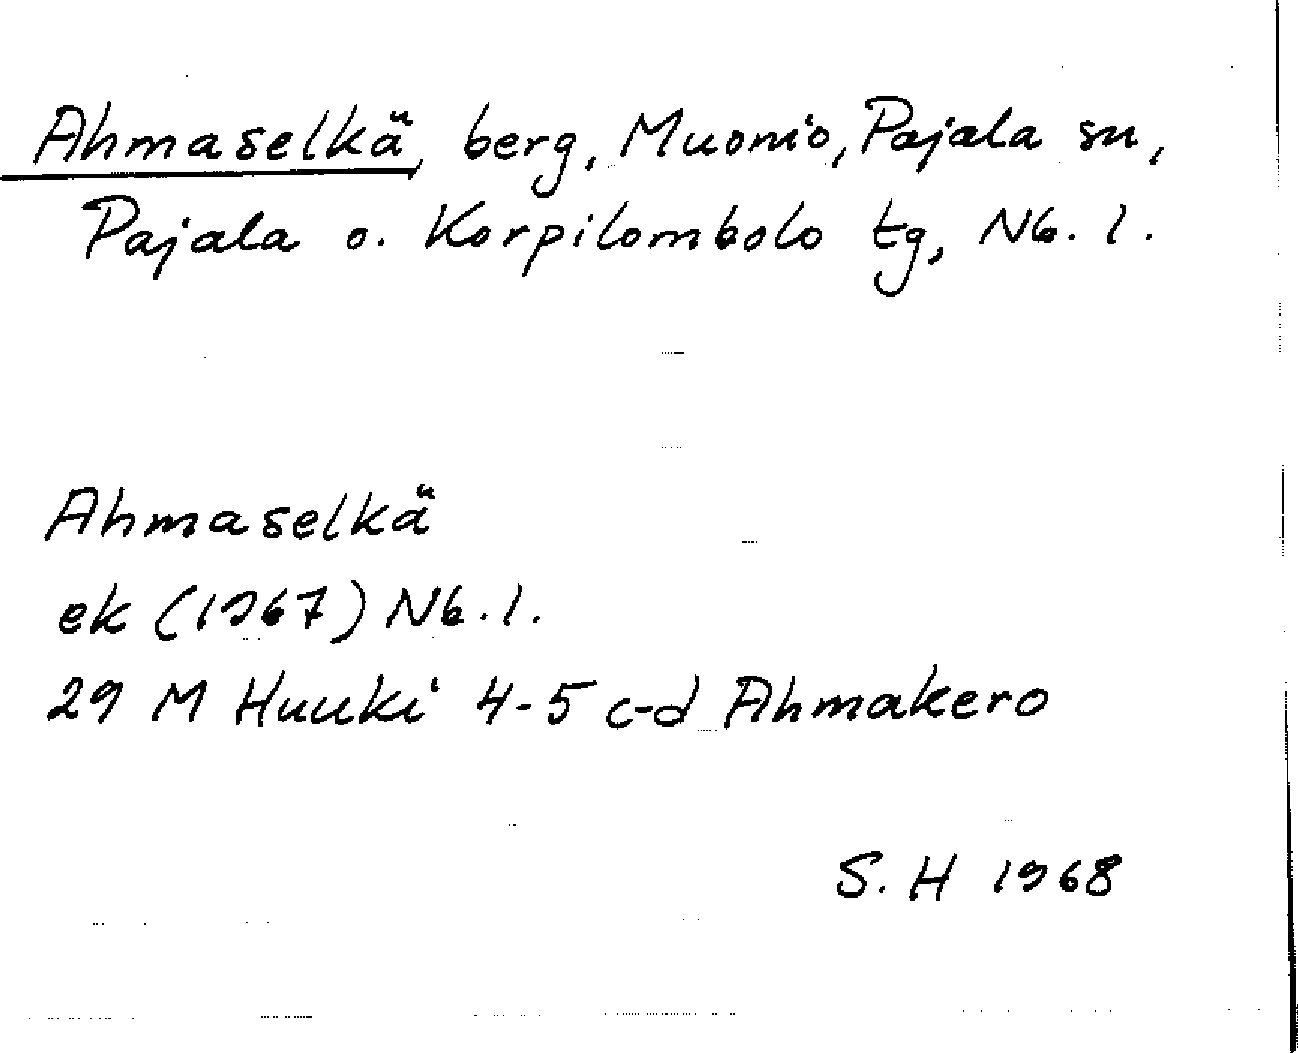 Ahmaselkä, berg, Muonio, Pajala sn,
Pajala o. Korpilombolo tg, Nb. l.
Ahmaselkä
ek (1967) Nb. l.
29 M Huuki 4-5 c-d Ahmakero
S. H 1968